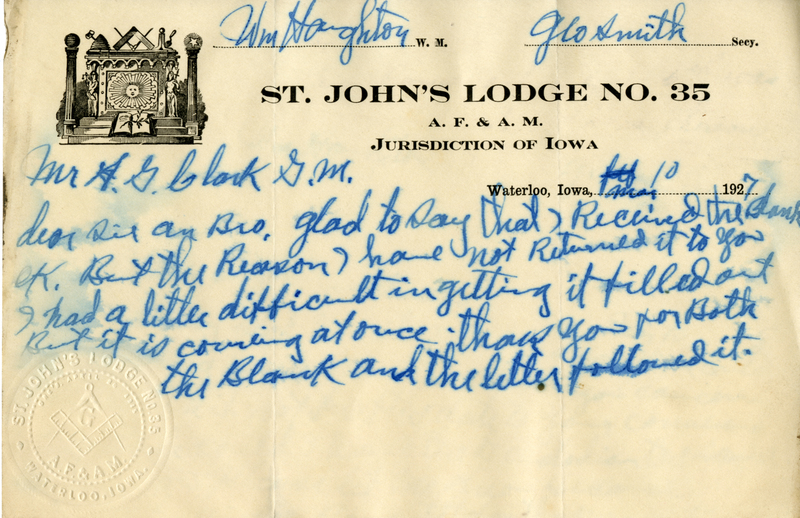 Wm Haughton W. M. Geo Smith Secy.
ST. JOHN'S LODGE NO. 35
A. F. & A. M.
JURISDICTION OF IOWA
Mr A. G. Clark G.M.
Waterloo, Iowa, Mar 10 1927
dear Sir an Bro. glad to say that I Received the Blank
OK. But the Reason I have not Returned it to you
I had a litter difficult in getting it filled out
But it is coming at once. thank you for Both
the Blank and the letter followed it.
ST. JOHN'S LODGE NO. 35
G
A.F. & A.M.
WATERLOO, IOWA.